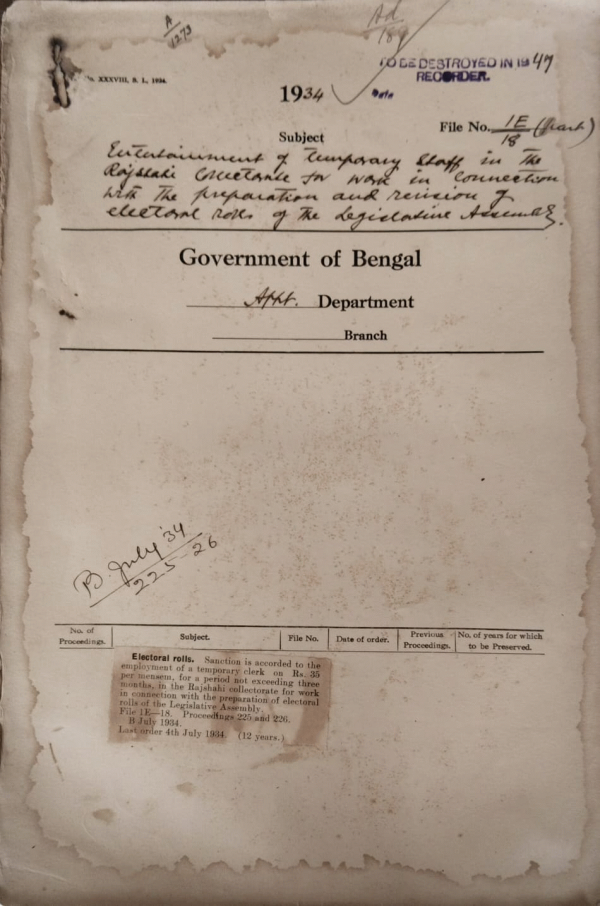 A
1273
Ad
189
No. XXXVIII, S. I., 1934.
TO BE DESTROYED IN 1947
RECORDER.
Date
1934
File No. 1E
18
Subject
Entertainment of temporary Staff in the
Rajshahi Collectorate for work in connection
with the preparation and revision of
electoral rolls of the Legislative Assembly.
Government of Bengal
Appt. Department
Branch
B July '34
225-26
No. of Proceedings. Subject. File No. Date of order. Previous Proceedings. No. of years for which to be Preserved.
Electoral rolls. Sanction is accorded to the
employment of a temporary clerk on Rs. 35
per mensem, for a period not exceeding three
months, in the Rajshahi collectorate for work
in connection with the preparation of electoral
rolls of the Legislative Assembly.
File 1E—18. Proceedings 225 and 226.
B July 1934.
Last order 4th July 1934. (12 years.)